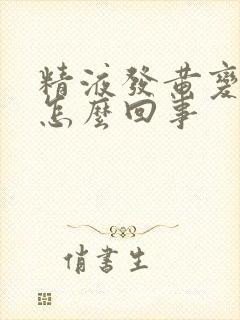 精液發黃變
怎麼回事
俏書生